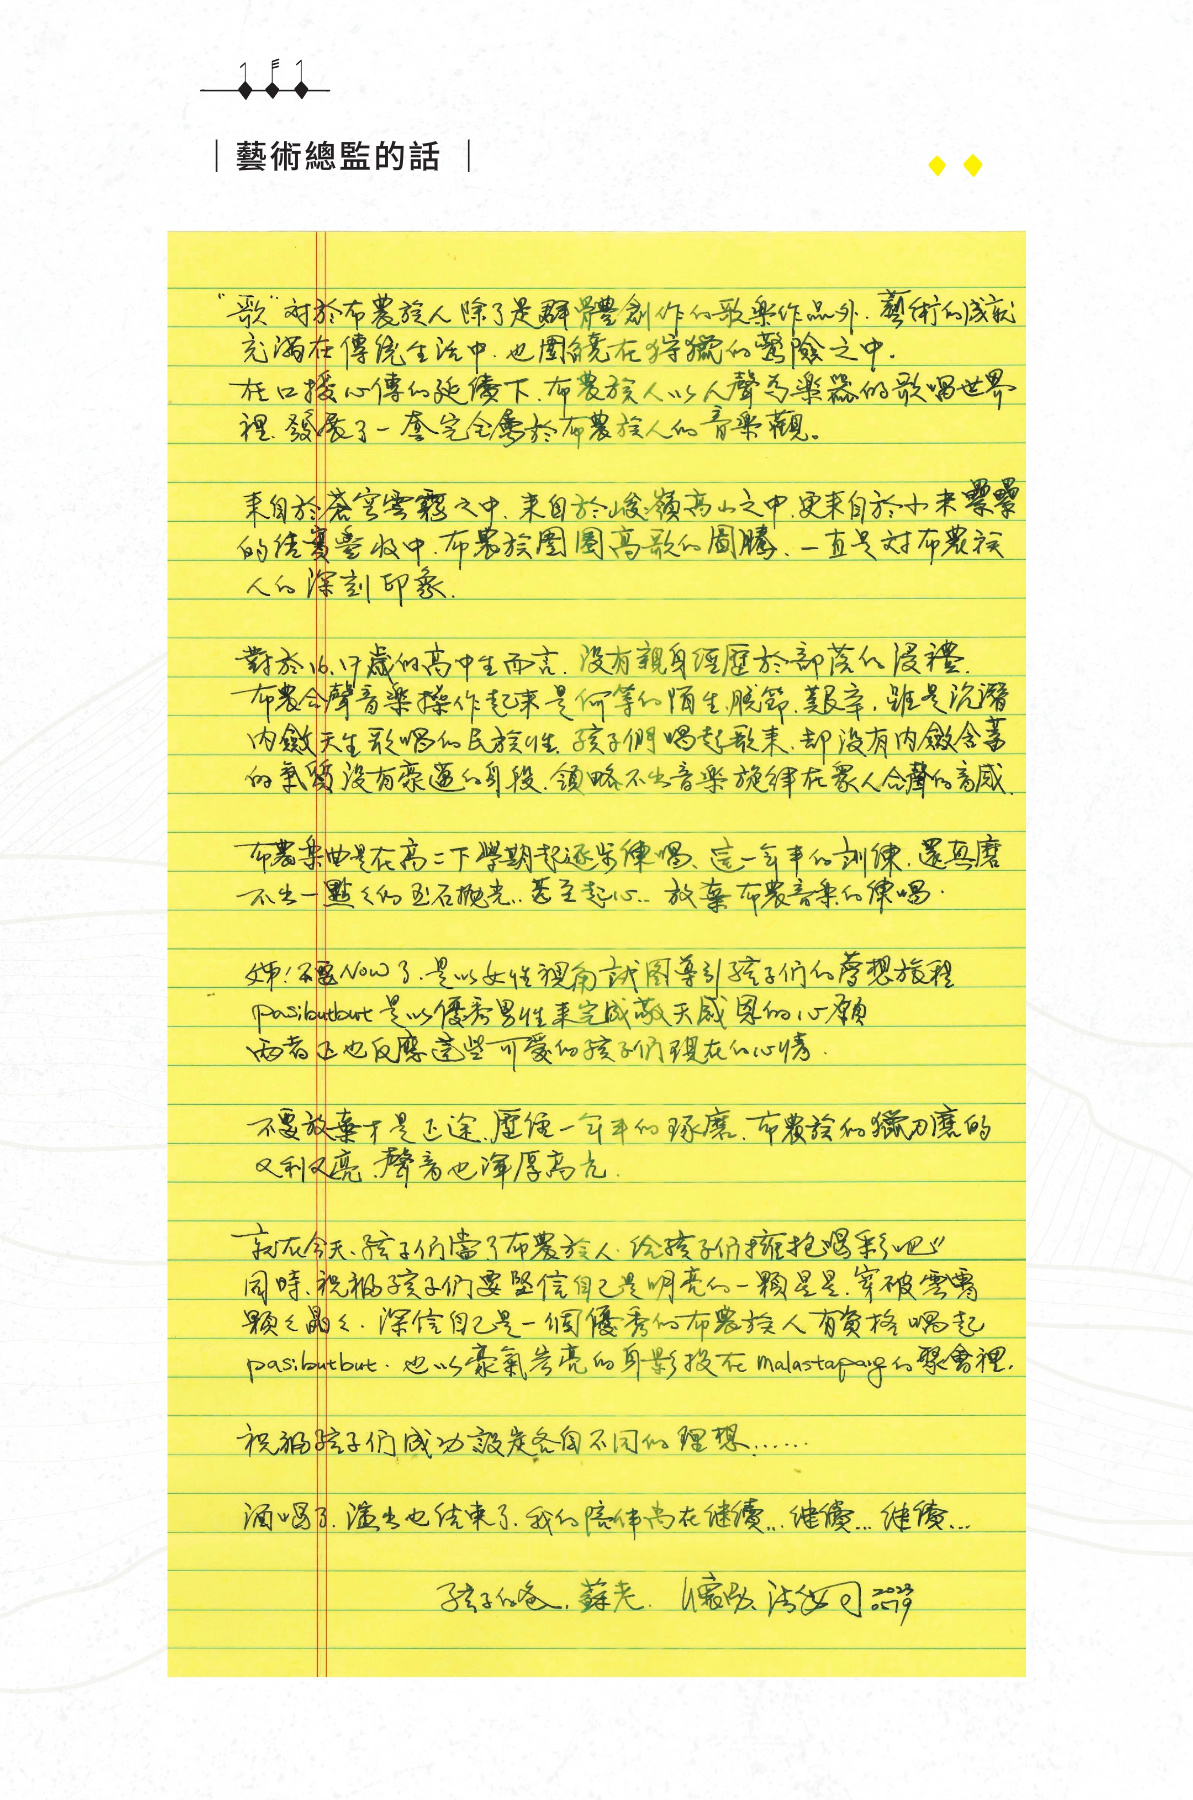 藝術總監的話
"歌"對於布農族人除了是群體創作的歌樂作品外、藝術的成就
充滿在傳統生活中、也圍繞在狩獵的驚險之中。
在口授心傳的延續下、布農族人以人聲為樂器的歌唱世界
裡、發展了一套完全屬於布農族人的音樂觀。
來自於蒼穹雲霧之中、來自於峻嶺高山之中、更來自於小米纍纍
的結實豐收中、布農族圍圈高歌的圖騰、一直是對布農族
人的深刻印象.
對於16、17歲的高中生而言、沒有親身經歷於部落的浸禮、
布農合聲音樂操作起來是何等的陌生、脫節、艱辛、雖是沉潛
內斂天生歌唱的民族性、孩子們唱起歌來、却沒有內斂含蓄
的氣質沒有豪邁的身段、領略不出音樂旋律在眾人合聲的音感、
布農樂曲是在高二下學期起逐步練唱、這一年半的訓練、還真磨
不出一點點的玉石拋光..甚至起心..放棄布農音樂的練唱.
不要NOW了.是以女性視角試图導引孩子们的夢想旅程
pasibutbut是以優秀男性來完成敬天感恩的心願
兩者正也反應這些可愛的孩子们現在的心情.
不要放棄才是正途、歷經一年半的琢磨、布農族的獵刀磨的
又利又亮、聲音也渾厚高亢.
就在今天、孩子们當了布農族人、給孩子们擁抱喝彩吧!!
同時、祝福孩子们要堅信自己是明亮的一顆星星、穿破雲霧
顆々晶々、深信自己是一個優秀的布農族人有資格唱起
pasibutbut.也以豪氣嘹亮的身影投在malastapang的聚會裡.
祝福孩子们成功設定各自不同的理想......
酒喝了、演出也結束了、我的陪伴尚在继續...继續...继續...
孩子的爸、蘇老.
2023
0519